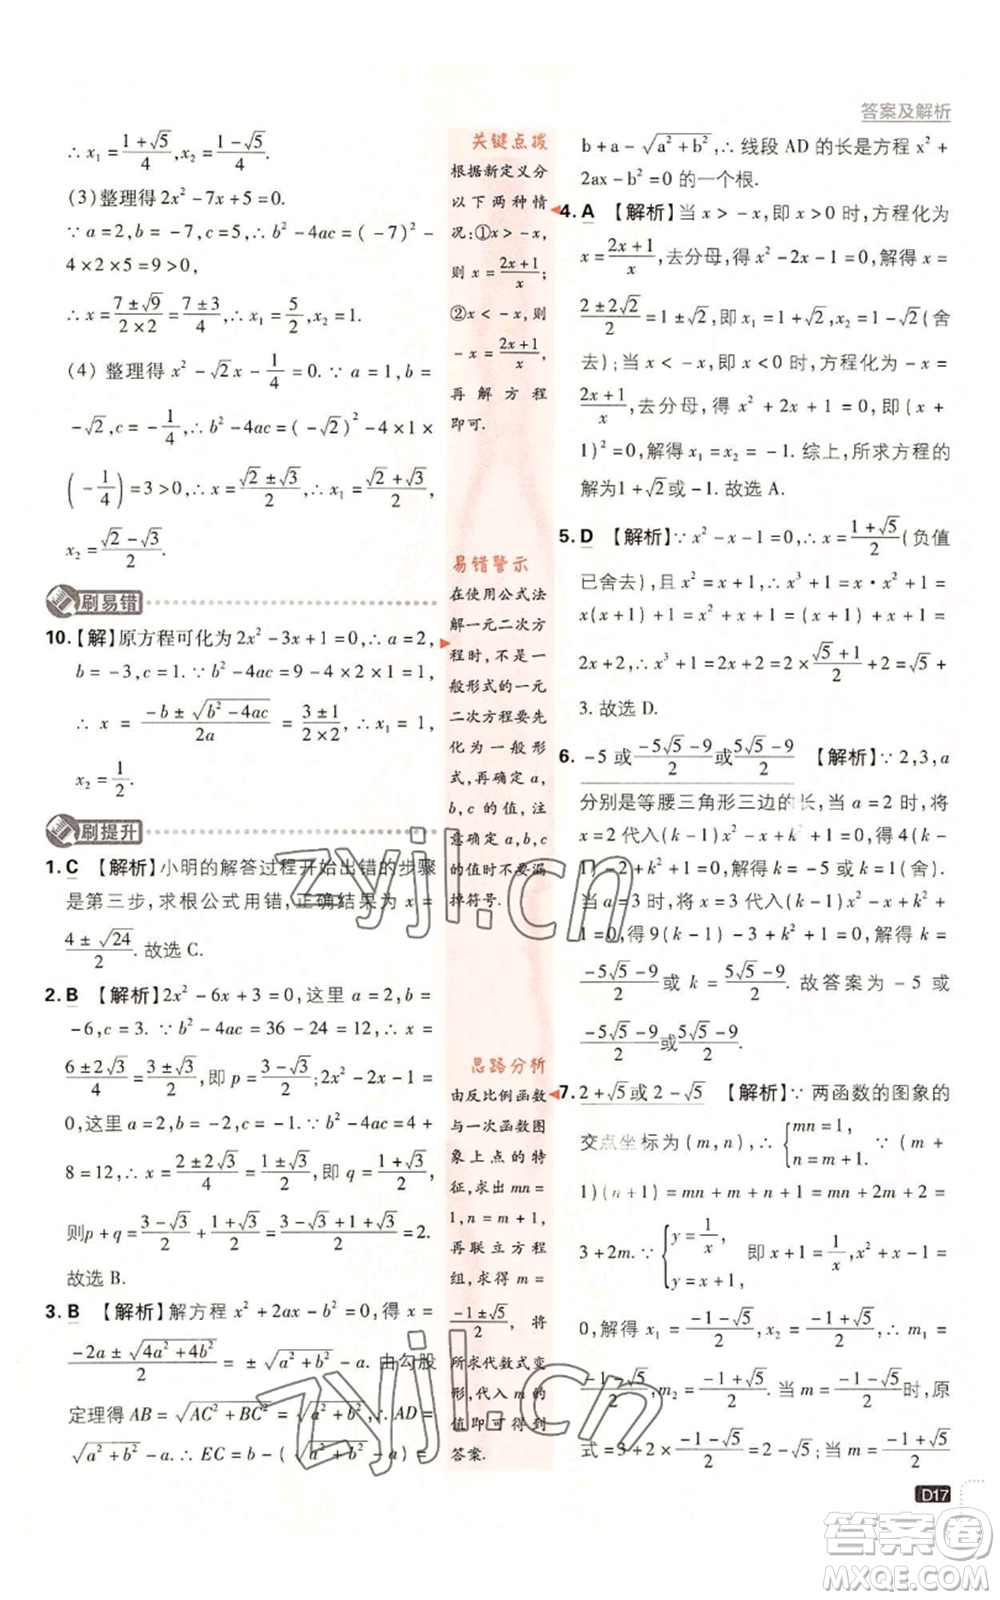 答案及解析
∴ x₁ = (1+√5)/4, x₂ = (1-√5)/4.
(3)整理得 2x² - 7x + 5 = 0.
∵ a = 2, b = -7, c = 5, ∴ b² - 4ac = (-7)² -
4×2×5 = 9 > 0,
∴ x = (7±√9)/(2×2) = (7±3)/4, ∴ x₁ = 5/2, x₂ = 1.
(4) 整理得 x² - √2x - 1/4 = 0. ∵ a = 1, b =
-√2, c = -1/4, ∴ b² - 4ac = (-√2)² - 4×1×
(-1/4) = 3 > 0, ∴ x = (√2±√3)/2, ∴ x₁ = (√2+√3)/2,
x₂ = (√2-√3)/2.
刷易错
10.【解】原方程可化为 2x² - 3x + 1 = 0, ∴ a = 2,
b = -3, c = 1. ∵ b² - 4ac = 9 - 4×2×1 = 1,
∴ x = (-b±√(b²-4ac))/2a = (3±1)/(2×2), ∴ x₁ = 1,
x₂ = 1/2.
刷提升
1. C 【解析】小明的解答过程开始出错的步骤
是第三步, 求根公式用错, 正确结果为 x =
(4±√24)/2. 故选 C.
2. B 【解析】2x² - 6x + 3 = 0, 这里 a = 2, b =
-6, c = 3. ∵ b² - 4ac = 36 - 24 = 12, ∴ x =
(6±2√3)/4 = (3±√3)/2, 即 p = (3-√3)/2; 2x² - 2x - 1 =
0, 这里 a = 2, b = -2, c = -1. ∵ b² - 4ac = 4 +
8 = 12, ∴ x = (2±2√3)/4 = (1±√3)/2, 即 q = (1+√3)/2,
则p + q = (3-√3)/2 + (1+√3)/2 = (3-√3+1+√3)/2 = 2.
故选 B.
3. B 【解析】解方程 x² + 2ax - b² = 0, 得 x =
(-2a±√(4a²+4b²))/2 = ±√(a²+b²) - a. 由勾股
定理得 AB = √(AC²+BC²) = √(a²+b²), ∴ AD =
√(a²+b²) - a. ∴ EC = b - (√(a²+b²) - a) =
关键点拨
根据新定义分
以下两种情
况:①x > -x,
则 x = (2x+1)/x;
②x < -x, 则
-x = (2x+1)/x,
再解方程
即可.
易错警示
在使用公式法
解一元二次方
程时,不是一
般形式的一元
二次方程要先
化为一般形
式,再确定 a,
b, c 的值, 注
意确定 a, b, c
的值时不要漏
掉符号.
思路分析
由反比例函数
与一次函数图
象上点的特
征,求出 mn =
1, n = m + 1,
再联立方程
组, 求得 m =
(-1±√5)/2, 将
所求代数式变
形,代入 m 的
值即可得到
答案.
b + a - √(a²+b²), ∴ 线段 AD 的长是方程 x² +
2ax - b² = 0 的一个根.
4. A 【解析】当 x > -x, 即 x > 0 时, 方程化为
x = (2x+1)/x, 去分母, 得 x² - 2x - 1 = 0, 解得 x =
(2±2√2)/2 = 1±√2, 即 x₁ = 1 + √2, x₂ = 1 - √2(舍
去); 当 x < -x, 即 x < 0 时, 方程化为 -x =
(2x+1)/x, 去分母, 得 x² + 2x + 1 = 0, 即 (x +
1)² = 0, 解得 x₁ = x₂ = -1. 综上, 所求方程的
解为1 + √2或 -1. 故选 A.
5. D 【解析】∵ x² - x - 1 = 0, ∴ x = (1+√5)/2(负值
已舍去), ∴ x² = x + 1, ∴ x³ = x · x² =
x(x + 1) = x² + x = x + 1 + x = 2x + 1, ∴ x³ + 1 =
2x + 2, ∴ x³ + 1 = 2×(√5+1)/2 + 2 = √5 +
3. 故选 D.
6. -5 或 (-5√5-9)/2 或 (5√5-9)/2 【解析】∵ 2, 3, a
分别是等腰三角形三边的长, 当 a = 2 时, 将
x = 2 代入(k - 1)x² - x + k² + 1 = 0, 得 4(k -
1) - 2 + k² + 1 = 0, 解得 k = -5 或 k = 1(舍).
当 a = 3 时, 将 x = 3 代入(k - 1)x² - x + k² +
1 = 0, 得 9(k - 1) - 3 + k² + 1 = 0, 解得 k =
(-5√5-9)/2 或 k = (5√5-9)/2. 故答案为 -5 或
(-5√5-9)/2 或 (5√5-9)/2.
7. 2 + √5 或 2 - √5 【解析】∵ 两函数的图象的
交点坐标为(m, n), ∴ {mn = 1, n = m + 1, ∵ (m +
1)(n + 1) = mn + m + n + 1 = mn + 2m + 2 =
3 + 2m. ∵ {y = 1/x, y = x + 1, 即 x + 1 = 1/x, ∴ x² + x - 1 =
0, 解得 x₁ = (-1-√5)/2, x₂ = (-1+√5)/2, ∴ m₁ =
(-1-√5)/2, m₂ = (-1+√5)/2. 当 m = (-1-√5)/2时, 原
式 = 3 + 2×(-1-√5)/2 = 2 - √5; 当 m = (-1+√5)/2
D17
zyjl.cn
zyjl.cn
答案圈
MXQE.COM